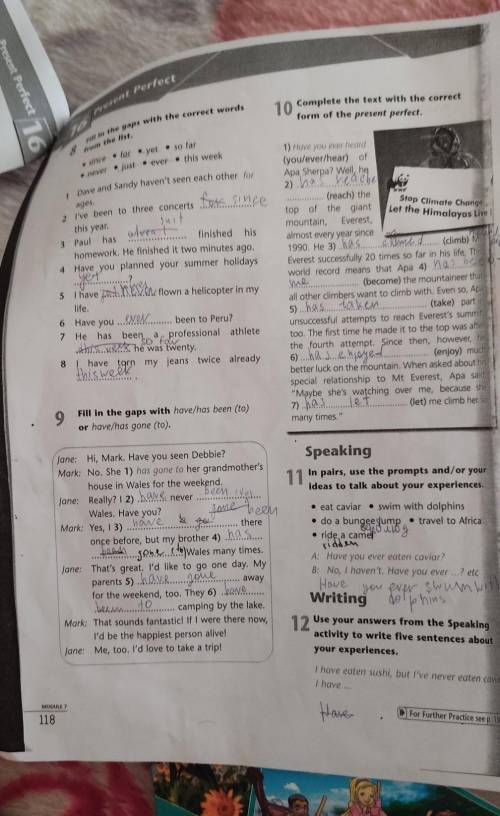 Present Perfect
16
Present Perfect
8 Fill in the gaps with the correct words
from the list.
• since • for • yet • so far
• never • just • ever • this week
1 Dave and Sandy haven't seen each other for
ages.
2 I've been to three concerts since
this year.
3 Paul has just finished his
homework. He finished it two minutes ago.
4 Have you planned your summer holidays
yet ?
5 I have never flown a helicopter in my
life.
6 Have you ever been to Peru?
7 He has been a professional athlete
so far he was twenty.
8 I have torn my jeans twice already
this week.
9 Fill in the gaps with have/has been (to)
or have/has gone (to).
Jane: Hi, Mark. Have you seen Debbie?
Mark: No. She 1) has gone to her grandmother's
house in Wales for the weekend.
Jane: Really? I 2) have never been
Wales. Have you?
Mark: Yes, I 3) have been there
once before, but my brother 4) has
gone (to) Wales many times.
Jane: That's great. I'd like to go one day. My
parents 5) have gone away
for the weekend, too. They 6) have
been to camping by the lake.
Mark: That sounds fantastic! If I were there now,
I'd be the happiest person alive!
Jane: Me, too. I'd love to take a trip!
MODULE 7
118
10 Complete the text with the correct
form of the present perfect.
1) Have you ever heard
(you/ever/hear) of
Apa Sherpa? Well, he
2) has reache
(reach) the
top of the giant
mountain, Everest,
almost every year since
1990. He 3) has climed (climb)
Everest successfully 20 times so far in his life.
world record means that Apa 4) has
(become) the mountaineer
all other climbers want to climb with. Even so,
5) has taken (take) part
unsuccessful attempts to reach Everest's
too. The first time he made it to the top was
the fourth attempt. Since then, however,
6) has enjoyed (enjoy) much
better luck on the mountain. When asked about
special relationship to Mt Everest, Apa
"Maybe she's watching over me, because she
7) has let (let) me climb her so
many times."
WWF
Stop Climate Change
Let the Himalayas Live
Speaking
11 In pairs, use the prompts and/or your
ideas to talk about your experiences.
• eat caviar • swim with dolphins
• do a bungee jump • travel to Africa
• ride a camel
ridden
A: Have you ever eaten caviar?
B: No, I haven't. Have you ever ...? etc
Have you ever swum with
dolphins
Writing
12 Use your answers from the Speaking
activity to write five sentences about
your experiences.
I have eaten sushi, but I've never eaten
I have ...
Have
For Further Practice see p.